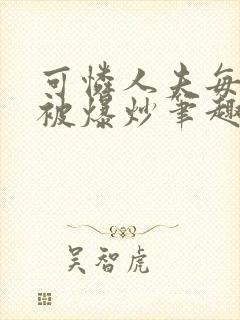 可怜人夫每
被爆炒笔趣
吴智虎